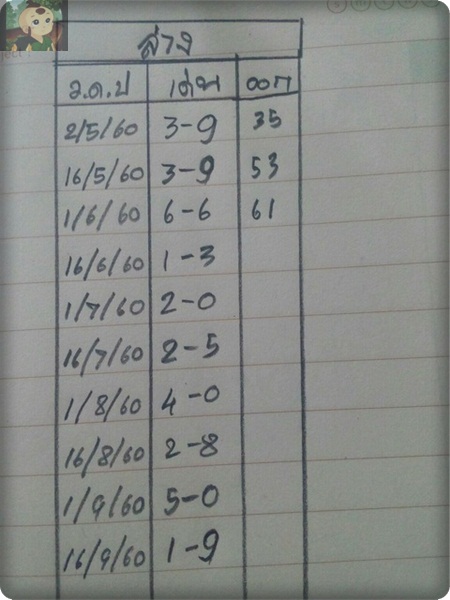 ล่าง
ว.ด.ป เด่น ออก
2/5/60 3-9 35
16/5/60 3-9 53
1/6/60 6-6 61
16/6/60 1-3
1/7/60 2-0
16/7/60 2-5
1/8/60 4-0
16/8/60 2-8
1/9/60 5-0
16/9/60 1-9